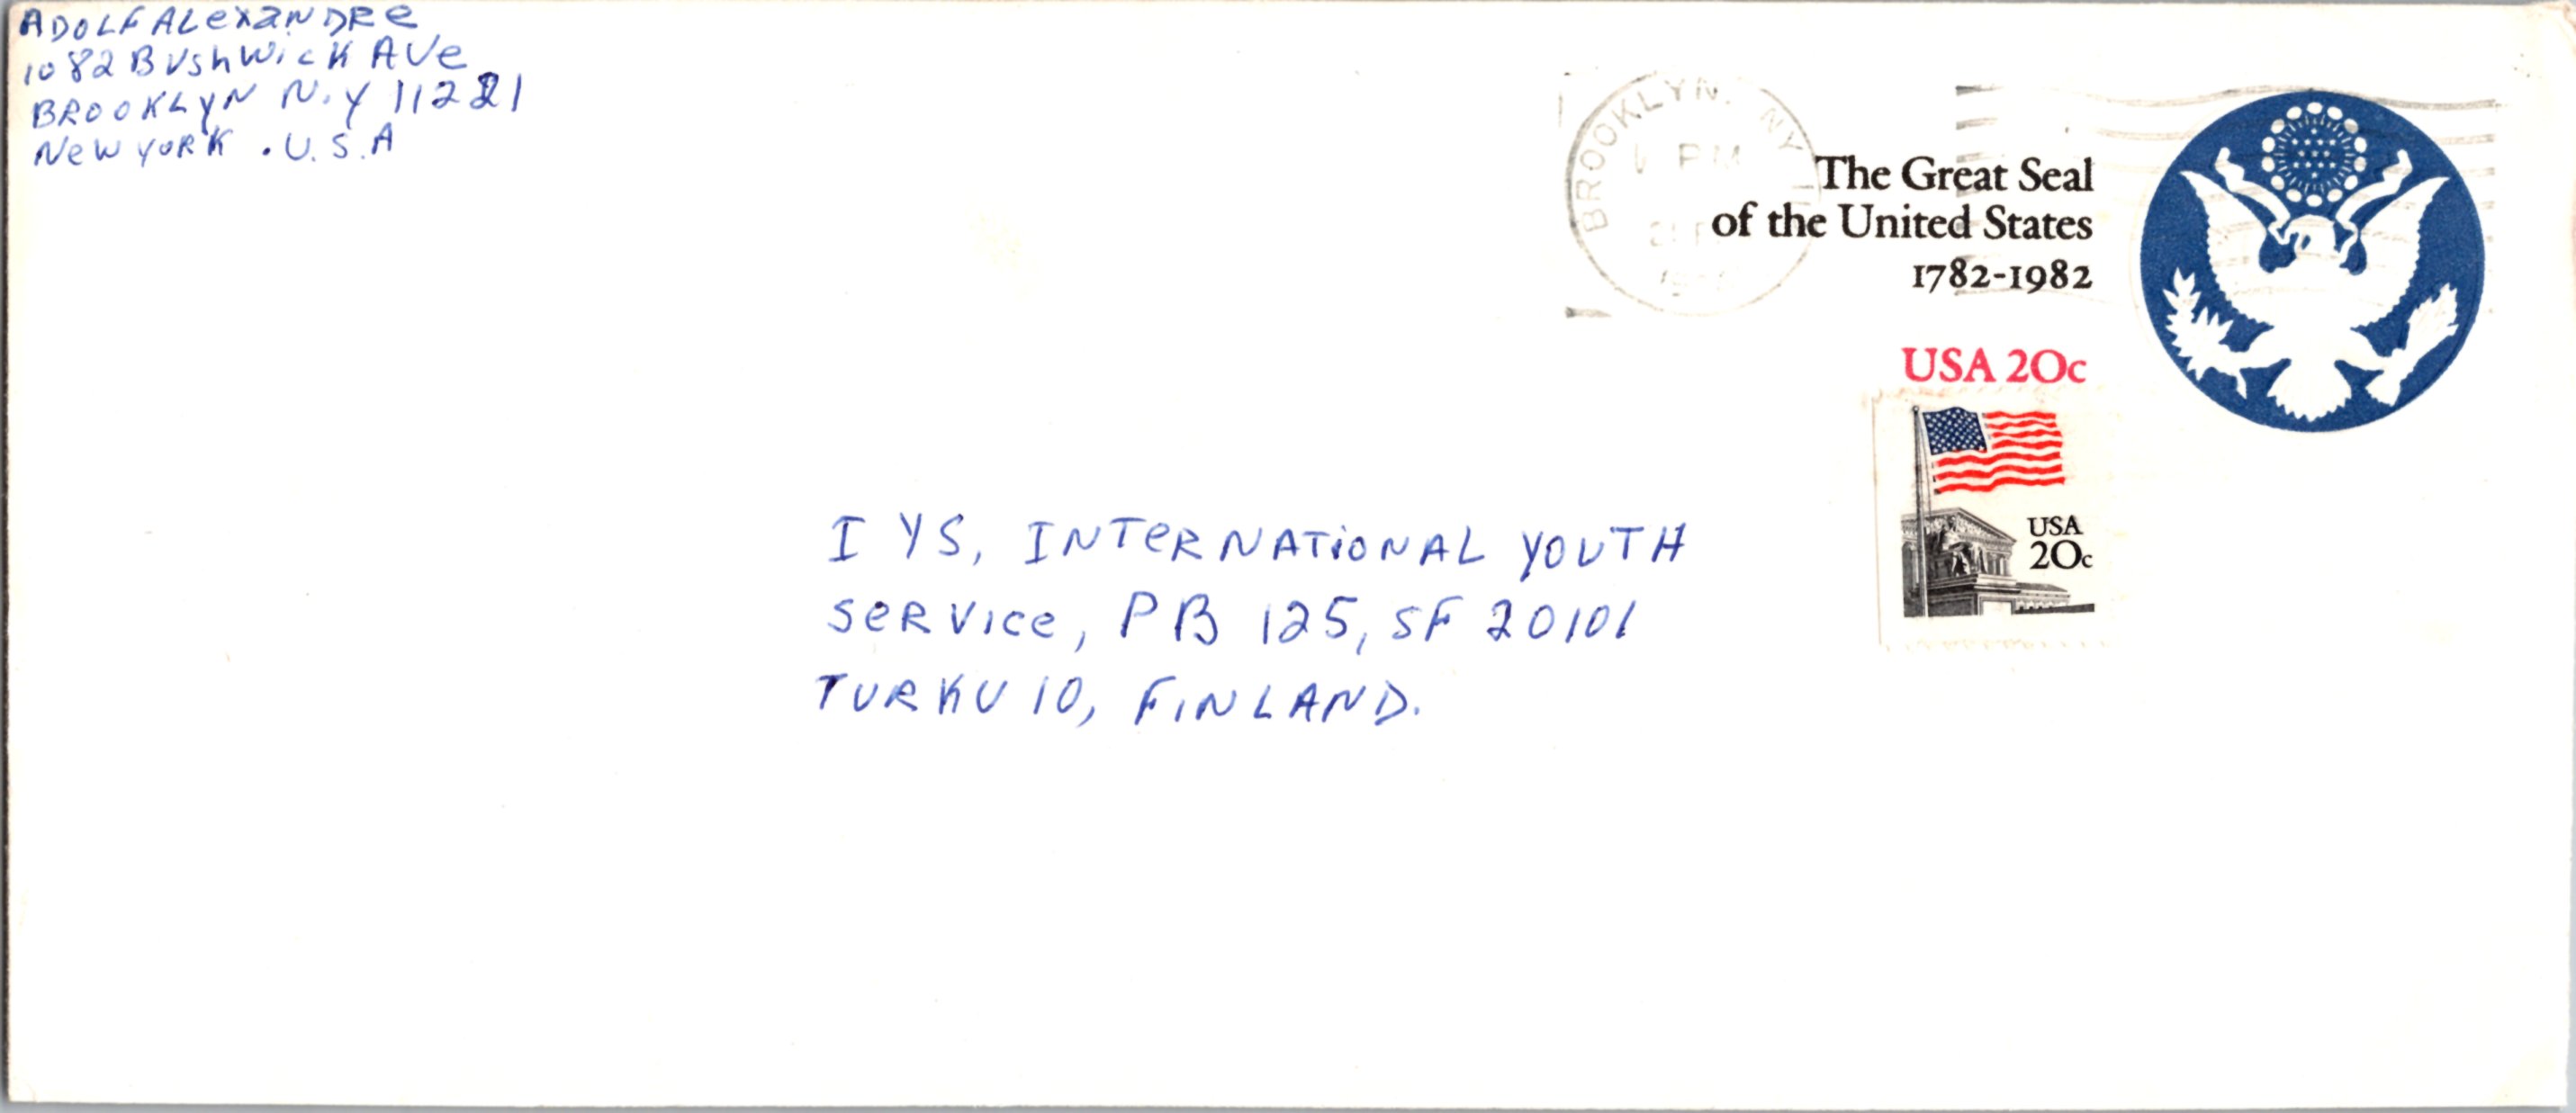 ADOLF ALexaNDRe
1082 BushWicK AVe
BROOKLYN N.Y 11221
NeW YORK . U.S.A
BROOKLYN, NY
PM
The Great Seal
of the United States
1782-1982
USA 20c
USA
20c
I YS, INTeRNATiONAL YOUTH
SeRVice, PB 125, SF 20101
TURKU 10, FiNLAND.